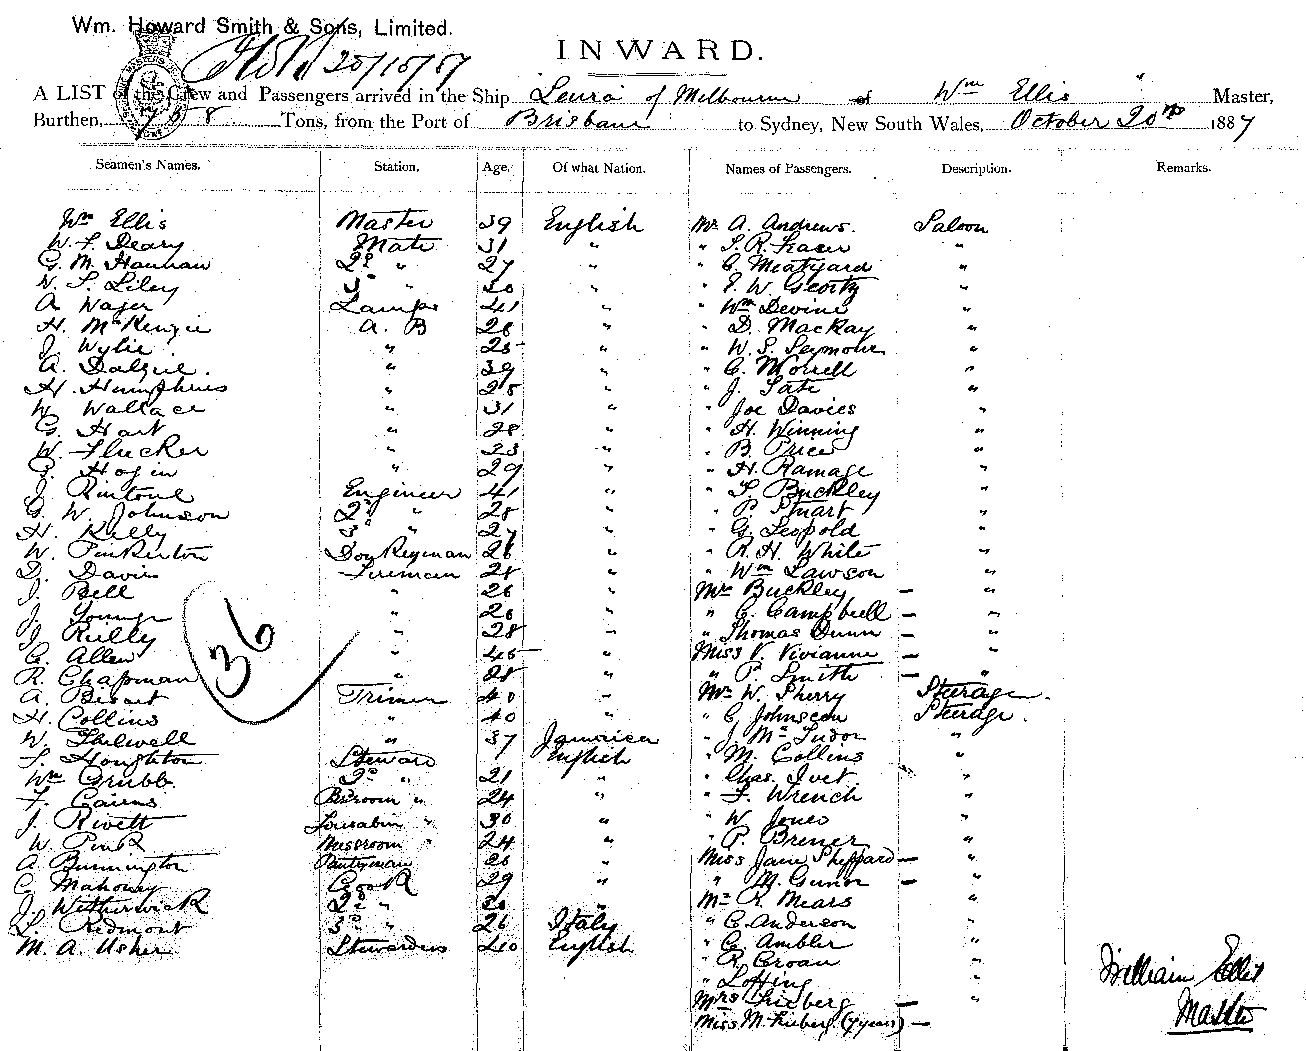 Wm. Howard Smith & Sons, Limited.
20/10/87
INWARD.
A LIST of the Crew and Passengers arrived in the Ship Leura of Melbourne of Wm Ellis Master,
Burthen, Tons, from the Port of Brisbane to Sydney, New South Wales, October 20th 1887
Seamen's Names. Station. Age. Of what Nation. Names of Passengers. Description. Remarks.
Wm Ellis Master 39 English Mr A. Andrews. Saloon
W. F. Deary Mate 31 " " J. R. Fraser "
G. M. Hannan 2d " 27 " " C. Meatyard "
W. S. Liley 3d " 30 " " E. W. "
A. Wager Lamps 41 " " Wm Devine "
H. McKenzie A. B 28 " " D. Mackay "
J. Wylie " 25 " " W. S. Seymour "
A. Dalziel. " 39 " " C. Worrell "
H. Humphries " 25 " " J. Tate "
W. Wallace " 31 " " Joe Davies "
G. Hart " 28 " " H. Winning "
W. Flucker " 23 " " B. Price "
Hogin " 29 " " H. Ramage "
J. Rintoul Engineer 41 " " T. Buckley "
G. W. Johnson 2d " 28 " " P. Stuart "
H. Kelly 3d " 27 " " G. Leopold "
W. Pinkerton Donkeyman 26 " " R. H. White "
D. Davis Fireman 28 " " Wm Lawson "
J. Bell " 26 " Mrs Buckley — "
J. Younger " 26 " " C. Campbell — "
J. Reilly " 28 " " Thomas Dunn — "
C. Allen " 45 " Miss V. Vivianne — "
R. Chapman " 28 " " P. Smith — "
36
A. Trimer 40 " Mr W. Sherry Steerage.
H. Collins " 40 " " C. Johnson Steerage.
W. Thelwell " 37 Jamaica " J. Mc Tudor "
Houghton Steward 36 English " M. Collins "
Wm Grubb. 2d " 21 " " Chas. Ivet "
F. Cairns " 24 " " F. Wrench "
J. Rivett " 30 " " W. Jones "
W. Pink Messroom " 24 " " P. Bremer "
A. Bunnington Pantryman 20 " Miss Jane Sheppard — "
C. Mahoney Cook 29 " " M. Gunor — "
J. Witherwick 2d " " Mr R. Mears "
L. Redmont 3d " 26 Italy " C. Anderson "
M. A. Usher Stewardess 40 English " G. Ambler "
" R. Croan "
" Lofting "
Mrs Frieberg — "
Miss M. Frieberg (7 years) —
William Ellis
Master